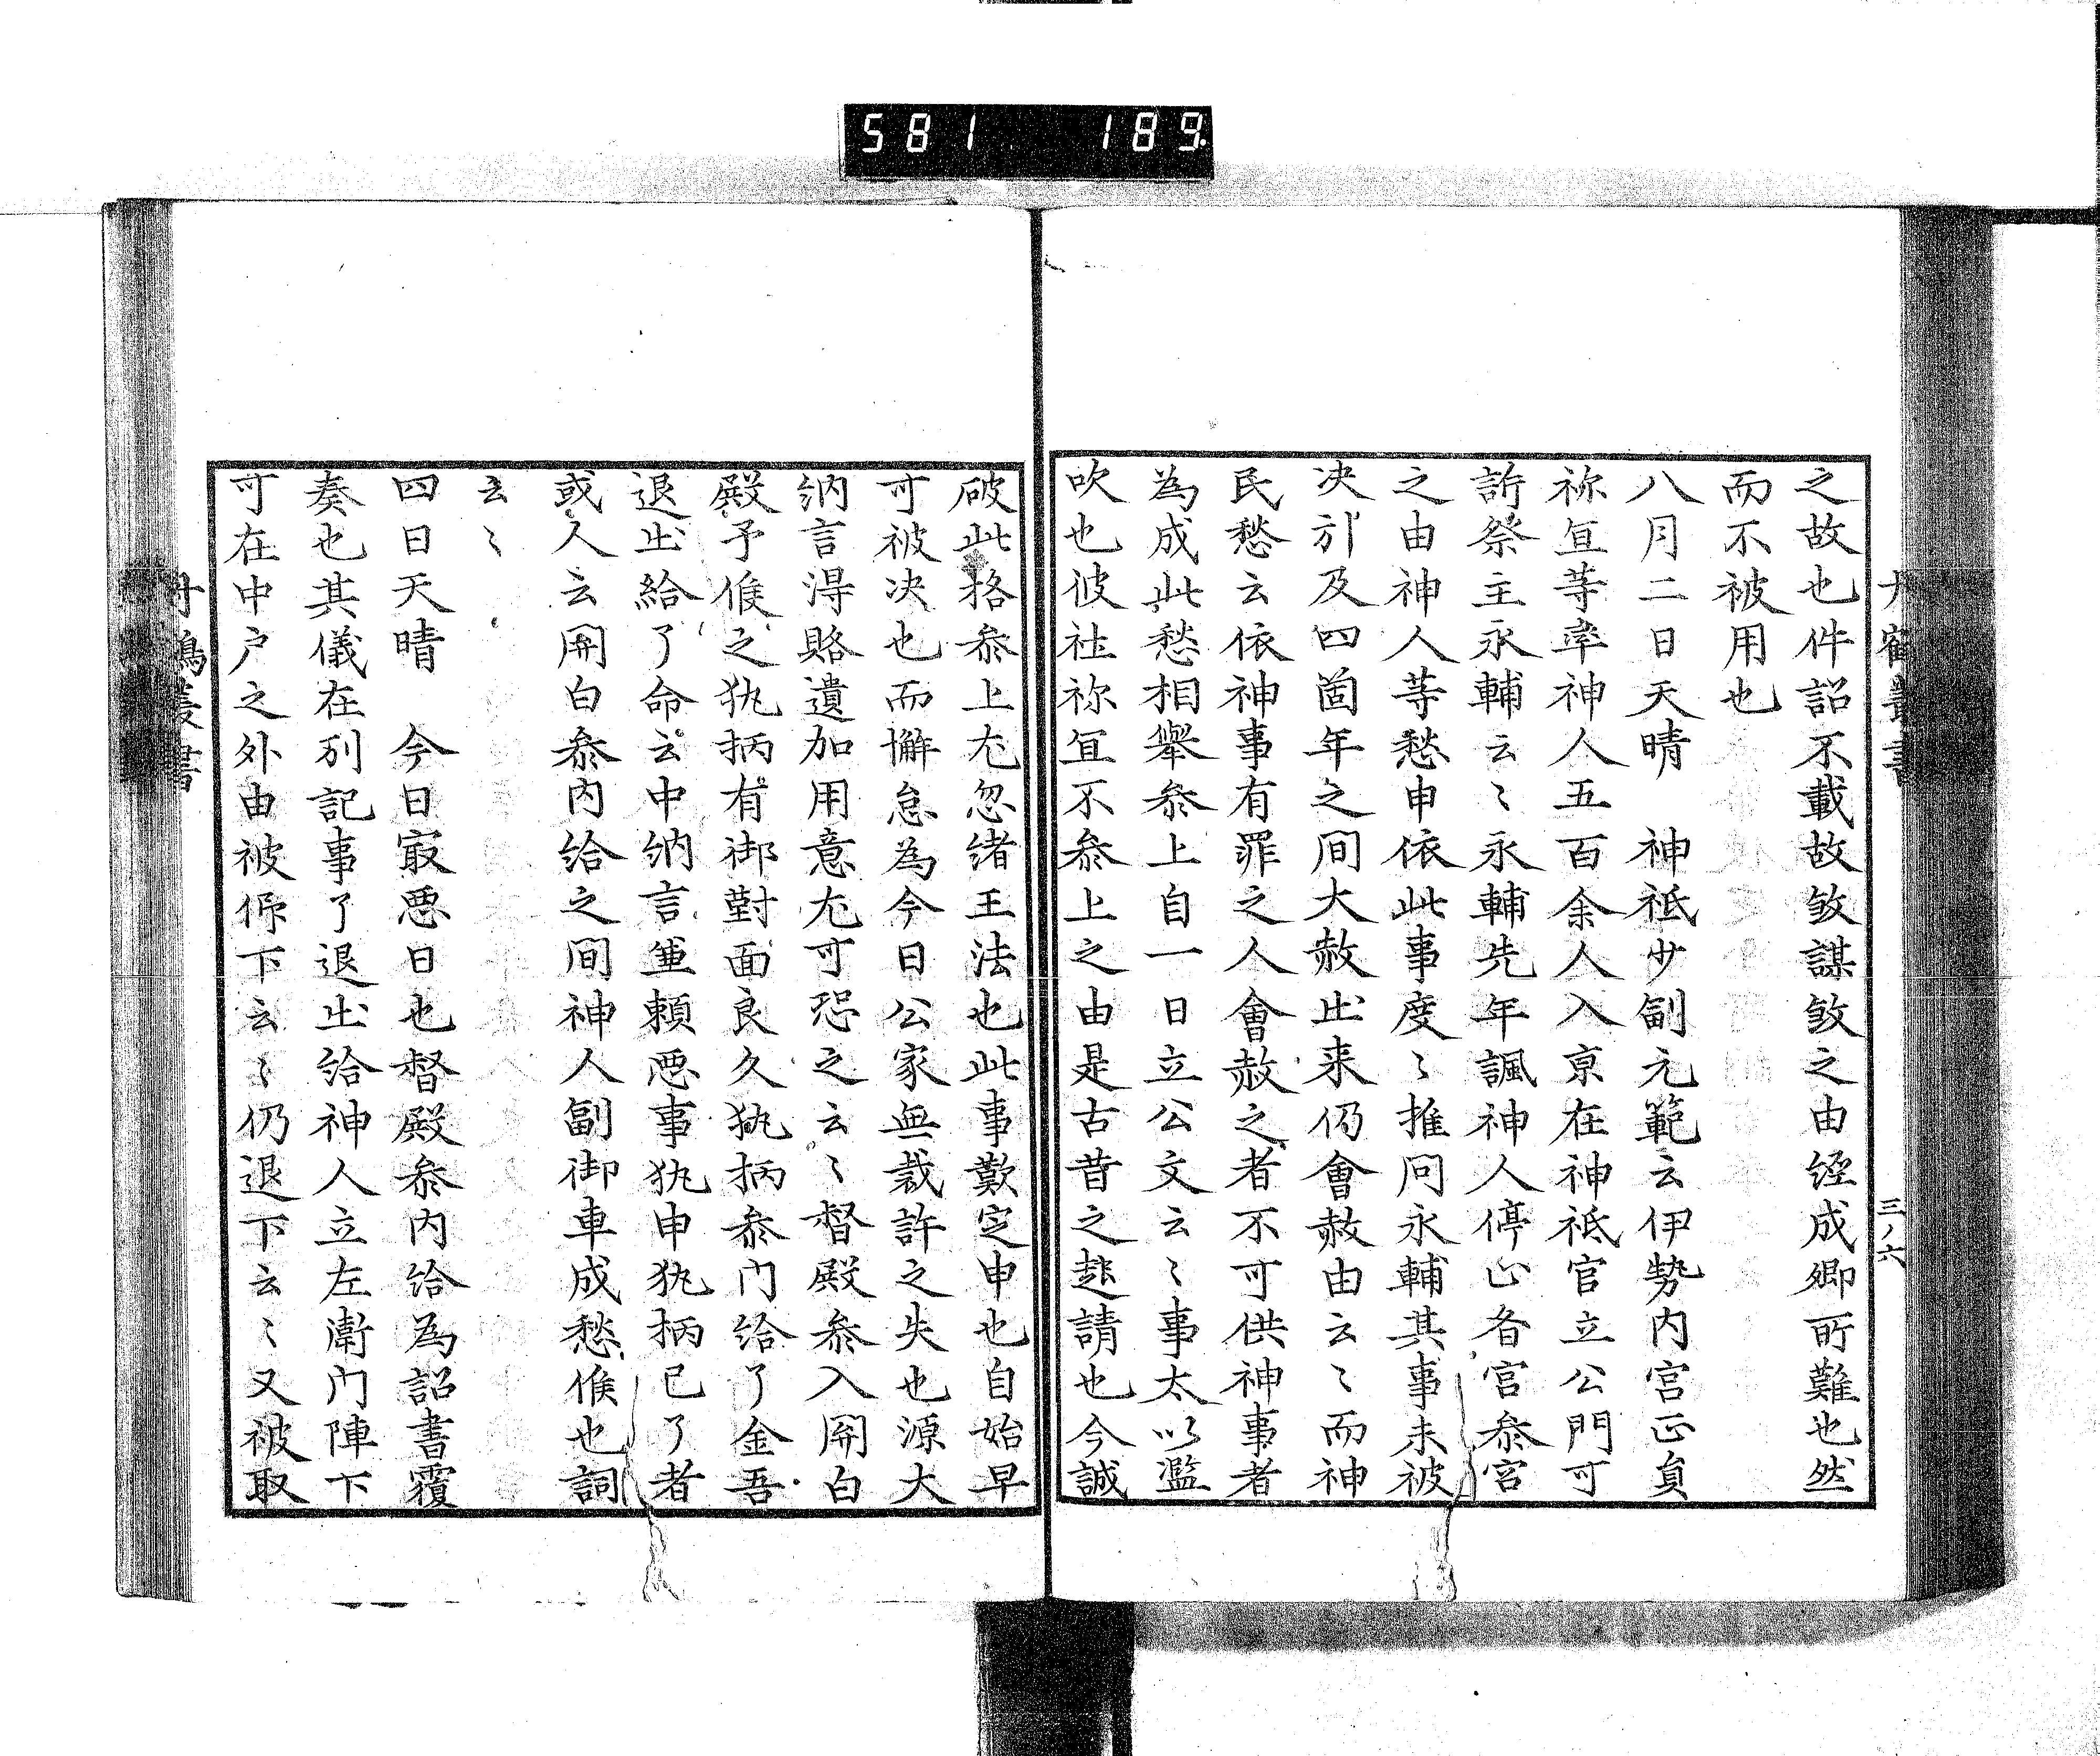 581 189
之故也件詔不載故敛謀敛之由経成卿所難也然
而不被用也
八月二日天晴　神祇少副元範云伊勢内宮正員
祢冝等率神人五百余人入京在神祇官立公門可
訴祭主永輔云〻永輔先年諷神人停止各宮参宮
之由神人等愁申依此事度〻推问永輔其事未被
决引及四箇年之间大赦出来仍會赦由云〻而神
民愁云依神事有罪之人會赦之者不可供神事者
為成此愁相舉参上自一日立公文云〻事太以濫
吹也彼社祢冝不参上之由是古昔之起請也今誠
破此格参上尤忽緒王法也此事歎定申也自始早
可被决也而懈怠為今日公家無裁許之失也源大
納言得賂遺加用意尤可恐之云〻督殿参入関白
殿予候之执柄有御對面良久执柄参门给了金吾
退出給了命云中納言兼頼悪事执申执柄已了者
或人云関白参内给之间神人副御車成愁候也詞
云〻
四日天晴　今日㝡悪日也督殿参内给為詔書覆
奏也其儀在別記事了退出给神人立左衛门陣下
可在中户之外由被仰下云〻仍退下云〻又被取
丹鶴叢書
三ノ六